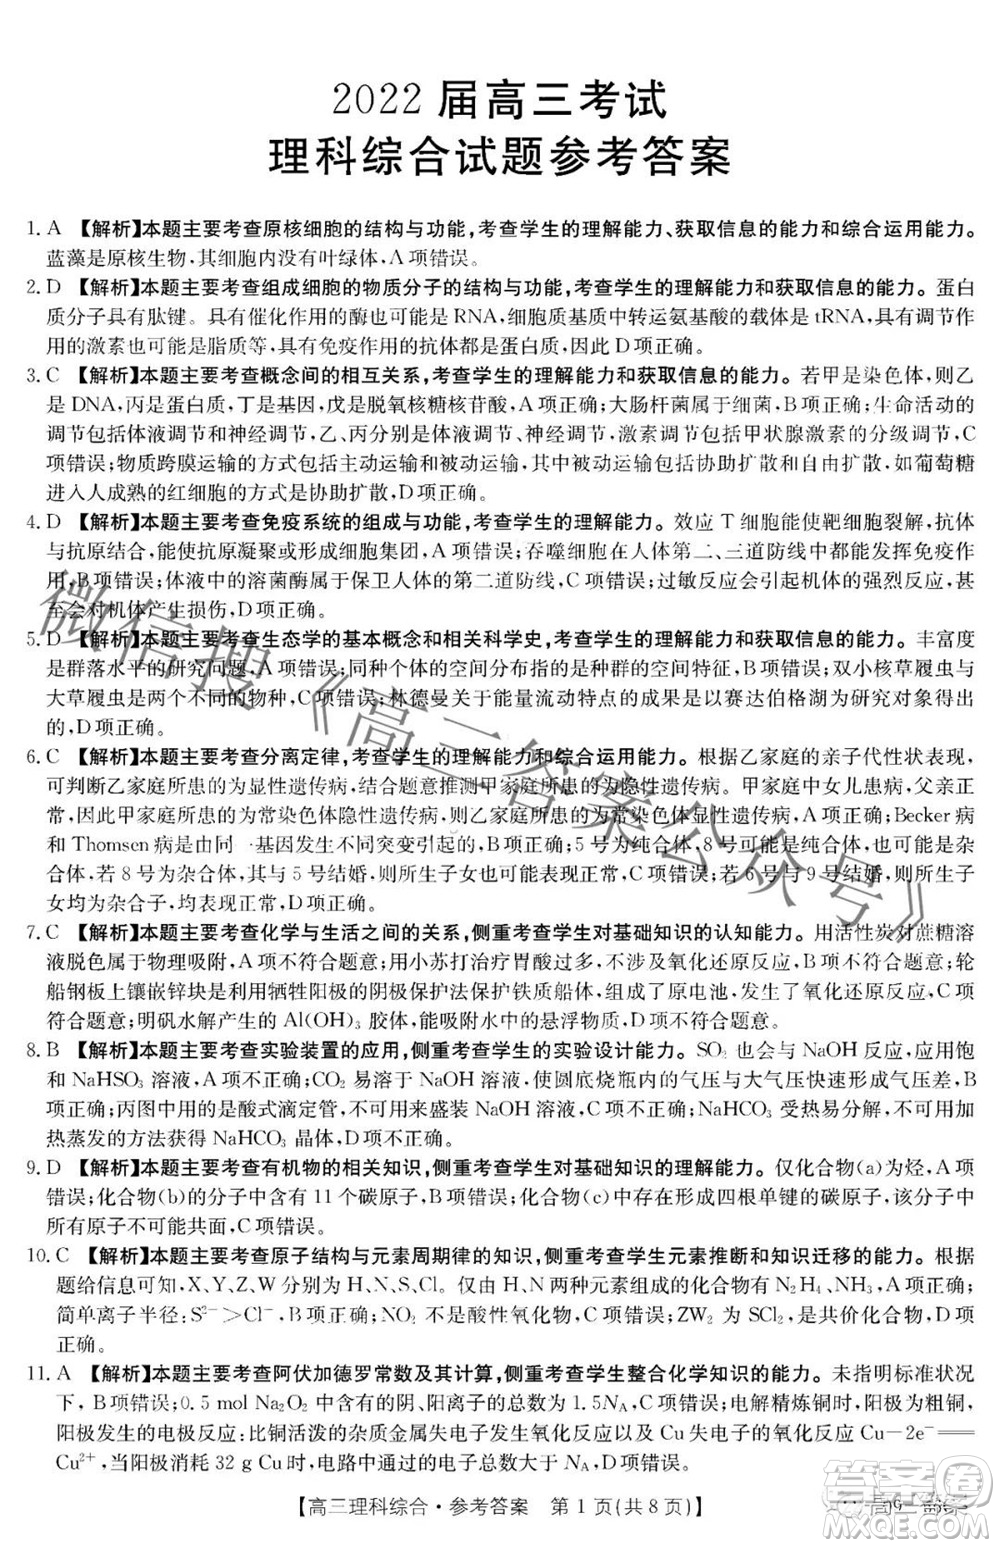 2022 届高三考试
理科综合试题参考答案
1. A 【解析】本题主要考查原核细胞的结构与功能,考查学生的理解能力、获取信息的能力和综合运用能力。
蓝藻是原核生物,其细胞内没有叶绿体,A 项错误。
2. D 【解析】本题主要考查组成细胞的物质分子的结构与功能,考查学生的理解能力和获取信息的能力。蛋白
质分子具有肽键。具有催化作用的酶也可能是 RNA,细胞质基质中转运氨基酸的载体是 tRNA,具有调节作
用的激素也可能是脂质,具有免疫作用的抗体都是蛋白质,因此 D 项正确。
3. C 【解析】本题主要考查概念间的相互关系,考查学生的理解能力和获取信息的能力。若甲是染色体,则乙
是 DNA,丙是蛋白质,丁是基因,戊是脱氧核糖核苷酸,A 项正确;大肠杆菌属于细菌,B 项正确;生命活动的
调节包括体液调节和神经调节,乙、丙分别是体液调节、神经调节,激素调节包括甲状腺激素的分级调节,C
项错误;物质跨膜运输的方式包括主动运输和被动运输,其中被动运输包括协助扩散和自由扩散,如葡萄糖
进入人成熟的红细胞的方式是协助扩散,D 项正确。
4. D 【解析】本题主要考查免疫系统的组成与功能,考查学生的理解能力。效应 T 细胞能使靶细胞裂解,抗体
与抗原结合,能使抗原凝聚或形成细胞集团,A 项错误;吞噬细胞在人体第二、三道防线中都能发挥免疫作
用,B 项错误;体液中的溶菌酶属于保卫人体的第二道防线,C 项错误;过敏反应会引起机体的强烈反应,甚
至会对机体产生损伤,D 项正确。
5. D 【解析】本题主要考查生态学的基本概念和相关科学史,考查学生的理解能力和获取信息的能力。丰富度
是群落水平的研究问题,A 项错误;同种个体的空间分布指的是种群的空间特征,B 项错误;双小核草履虫与
大草履虫是两个不同的物种,C 项错误;林德曼关于能量流动特点的成果是以赛达伯格湖为研究对象得出
的,D 项正确。
6. C 【解析】本题主要考查分离定律,考查学生的理解能力和综合运用能力。根据乙家庭的亲子代性状表现,
可判断乙家庭所患的为显性遗传病,结合题意推测甲家庭所患的为隐性遗传病。甲家庭中女儿患病,父亲正
常,因此甲家庭所患的为常染色体隐性遗传病,则乙家庭所患的为常染色体显性遗传病,A 项正确;Becker 病
和 Thomsen 病是由同一基因发生不同突变引起的,B 项正确;5 号为纯合体,8 号可能是纯合体,也可能是杂
合体,若 8 号为杂合体,其与 5 号结婚,则所生子女也可能表现正常,C 项错误;若 6 号与 9 号结婚,则所生子
女均为杂合子,均表现正常,D 项正确。
7. C 【解析】本题主要考查化学与生活之间的关系,侧重考查学生对基础知识的认知能力。用活性炭对蔗糖溶
液脱色属于物理吸附,A 项不符合题意;用小苏打治疗胃酸过多,不涉及氧化还原反应,B 项不符合题意;轮
船钢板上镶嵌锌块是利用牺牲阳极的阴极保护法保护铁质船舶,构成了原电池,发生了氧化还原反应,C 项
符合题意;明矾水解产生的 Al(OH)₃ 胶体,能吸附水中的悬浮物质,D 项不符合题意。
8. B 【解析】本题主要考查实验装置的应用,侧重考查学生的实验设计能力。SO₂ 也会与 NaOH 反应,应用饱
和 NaHSO₃ 溶液,A 项错误;CO₂ 极易溶于 NaOH 溶液,使圆底烧瓶内的气压与大气压快速形成气压差,B 项
正确;丙图中使用的是酸式滴定管,不可用来盛装 NaOH 溶液,C 项错误;NaHCO₃ 受热易分解,不可用加
热蒸发的方法获得 NaHCO₃ 晶体,D 项不正确。
9. D 【解析】本题主要考查有机物的相关知识,侧重考查学生对基础知识的理解能力。仅化合物(a)为烃,A 项
错误;化合物(b)的分子中含有 11 个碳原子,B 项错误;化合物(c)中存在形成四个单键的碳原子,该分子中
所有原子不可能共面,C 项错误。
10. C 【解析】本题主要考查原子结构与元素周期律的知识,侧重考查学生元素推断和知识迁移的能力。根据
题给信息可知,X、Y、Z、W 分别为 H、N、S、Cl。仅由 H、N 两种元素组成的化合物有 N₂H₄、NH₃,A 项正确;
简单离子半径:S²⁻>Cl⁻,B 项正确;NO、NO₂ 不是酸性氧化物,C 项错误;ZW₂ 为 SCl₂,是共价化合物,D 项
正确。
11. A 【解析】本题主要考查阿伏加德罗常数及其计算,侧重考查学生整合化学知识的能力。未指明标准状况
下,B 项错误;0.5 mol Na₂O₂ 中,阴、阳离子的总数为 1.5Nₐ,C 项错误;电解精炼铜时,阳极为粗铜,
阳极发生的电极反应:比铜活泼的杂质金属失电子的氧化反应以及 Cu 失电子的氧化反应 Cu−2e⁻══
Cu²⁺,当阳极消耗 32 g Cu 时,电路中通过的电子数大于 Nₐ,D 项错误。
【高三理科综合·参考答案 第 1 页(共 8 页)】
微信搜《高三答案公众号》
作业帮答案
MXQE.COM